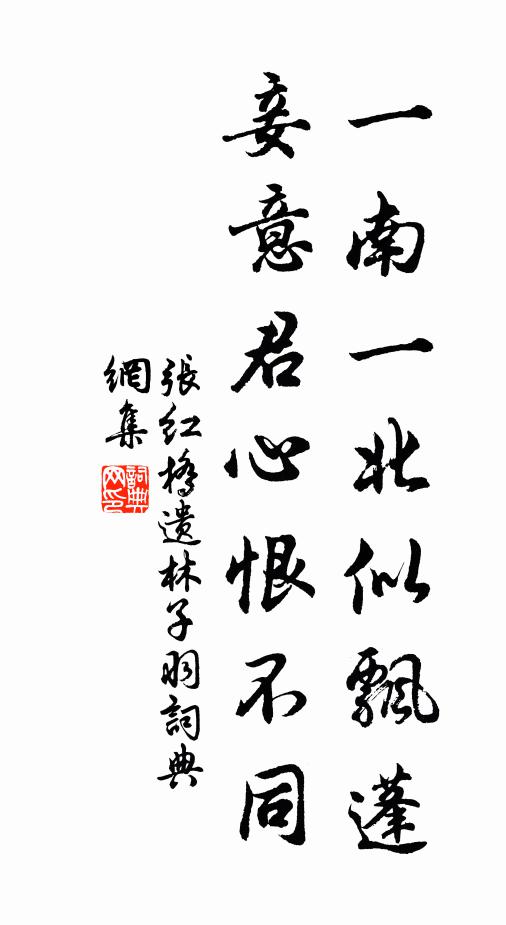 一南一北似飄蓬
妾意君心恨不同
張紅橋遺林子羽詞典
網集
詞典網印